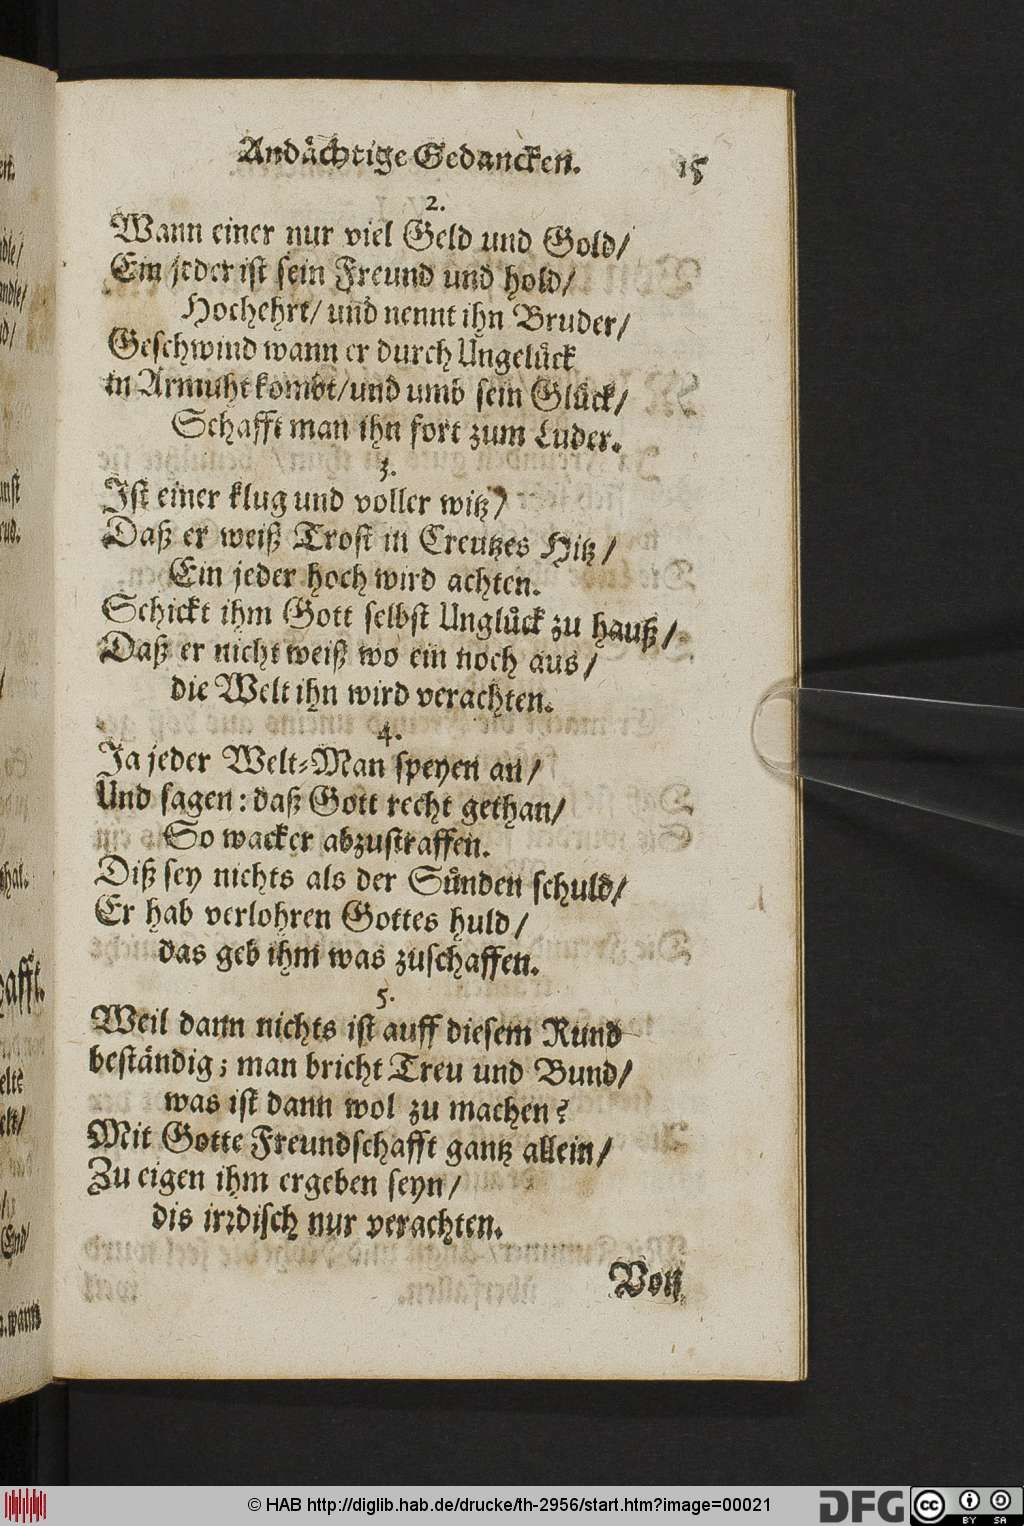 Andächtige Gedancken. 15
2.
Wann einer nur viel Geld und Gold/
Ein jeder ist sein Freund und hold/
Hochehrt/ und nennt ihn Bruder/
Geschwind wann er durch Ungelück
in Armuht kombt/und umb sein Glück/
Schafft man ihn fort zum Luder.
3.
Ist einer klug und voller witz/
Daß er weiß Trost in Creutzes Hitz/
Ein jeder hoch wird achten.
Schickt ihm Gott selbst Unglück zu hauß/
Daß er nicht weiß wo ein noch aus/
die Welt ihn wird verachten.
4.
Ja jeder Welt-Man speyen an/
Und sagen: daß Gott recht gethan/
So wacker abzustraffen.
Diß sey nichts als der Sünden schuld/
Er hab verlohren Gottes huld/
das geb ihm was zuschaffen.
5.
Weil dann nichts ist auff diesem Rund
beständig; man bricht Treu und Bund/
was ist dann wol zu machen?
Mit Gotte Freundschafft gantz allein/
Zu eigen ihm ergeben seyn/
dis irrdisch nur verachten.
© HAB http://diglib.hab.de/drucke/th-2956/start.htm?image=00021
DFG
cc BY SA